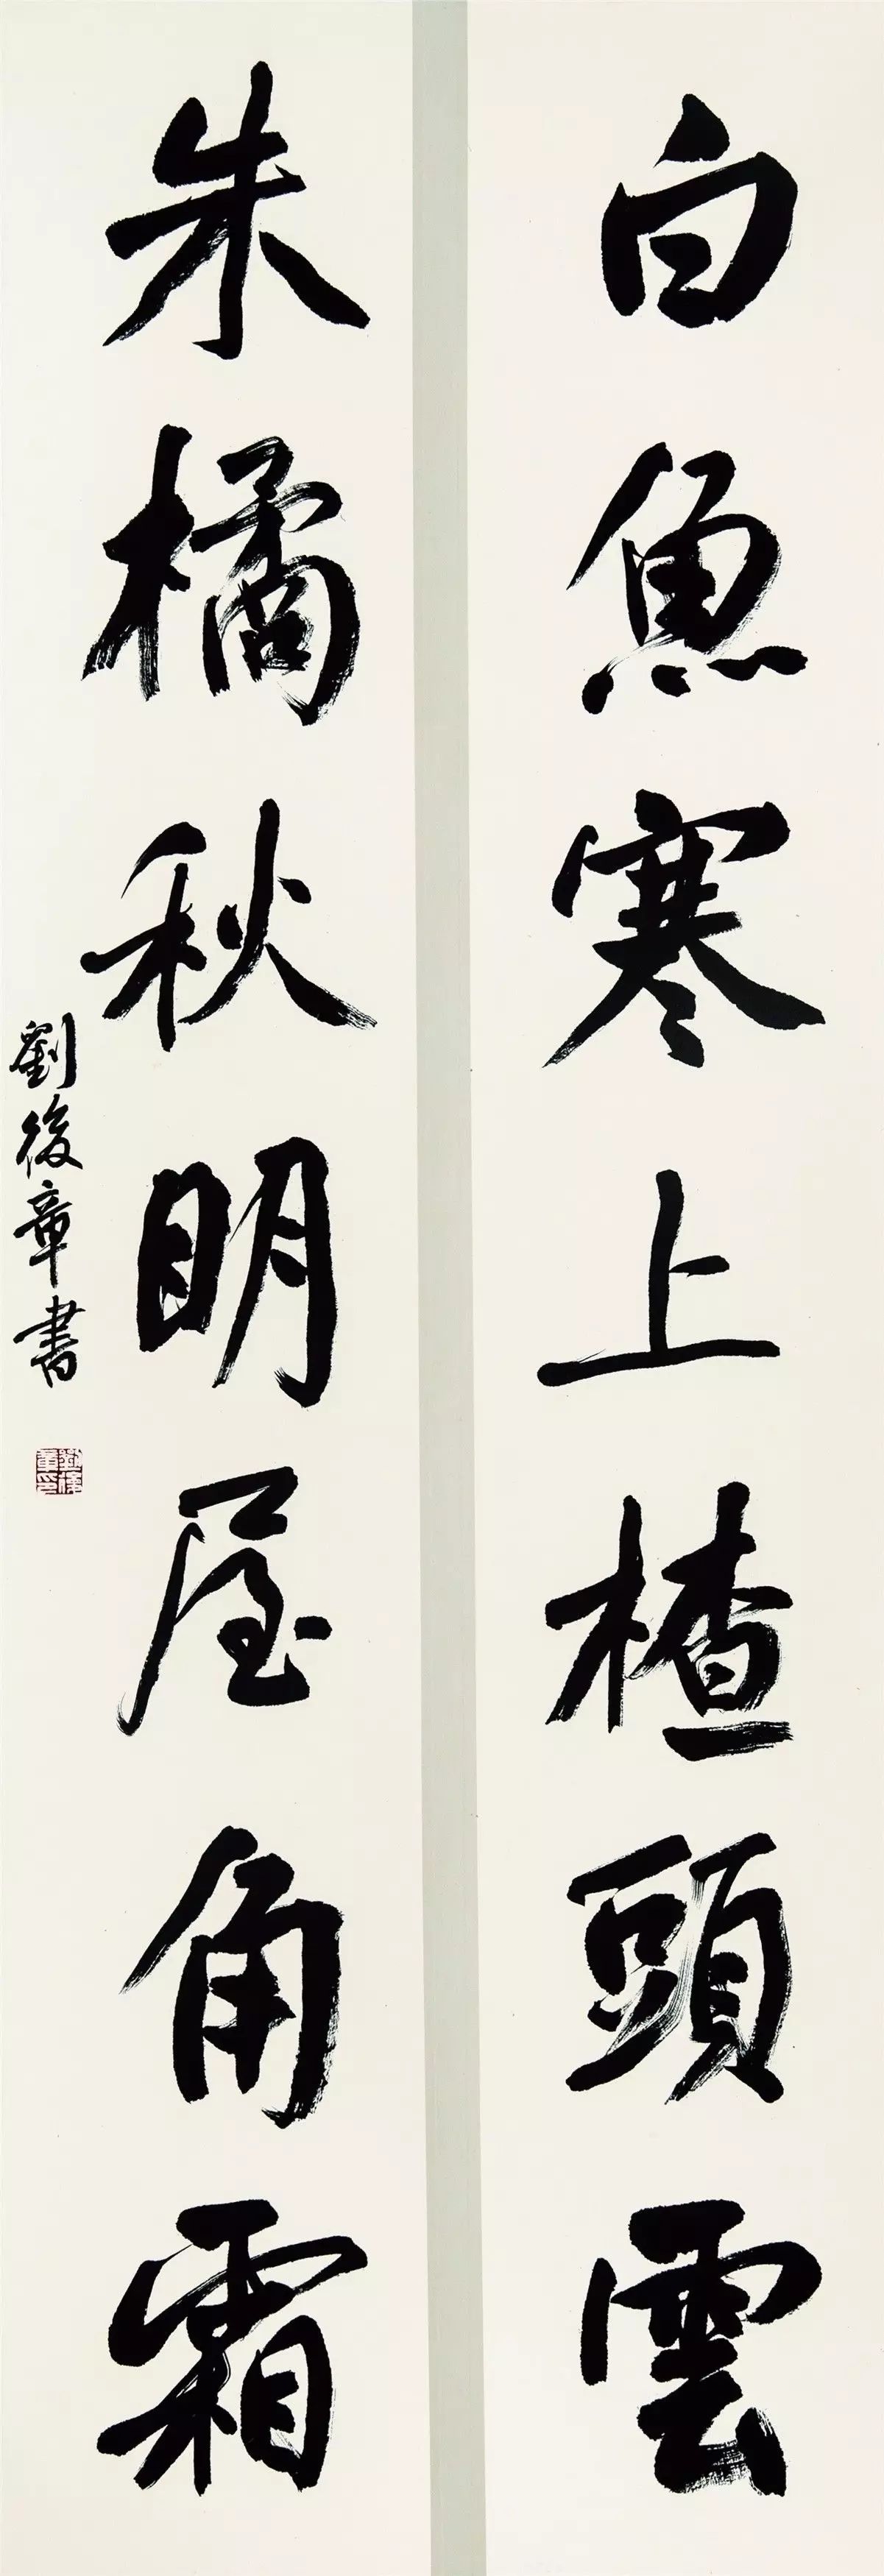 白魚寒上楂頭雲
朱橘秋明屋角霜
劉後章書